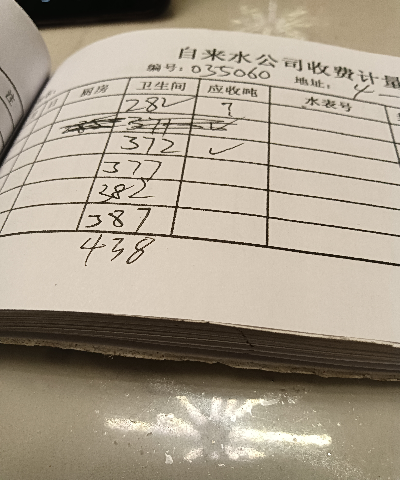 自来水公司收费计量
编号:035060 地址:4
日 厨房 卫生间 应收吨 水表号
282 ?
372 ✓
377
382
387
438